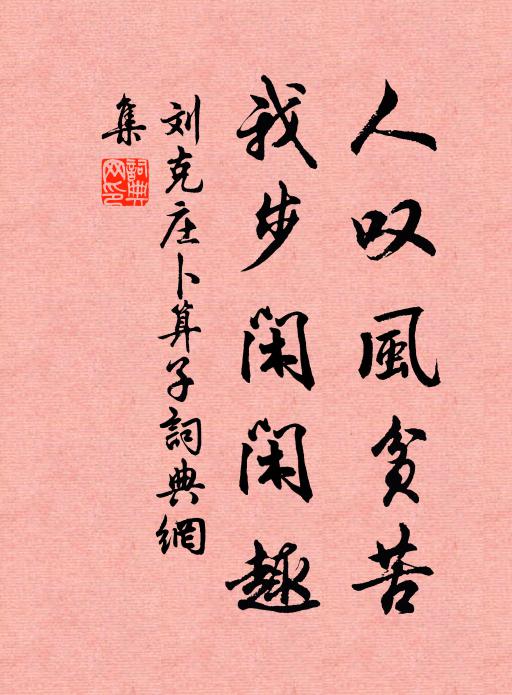 人叹風貧苦
我步闲闲趣
刘克庄卜算子詞典網
集
詞典网印